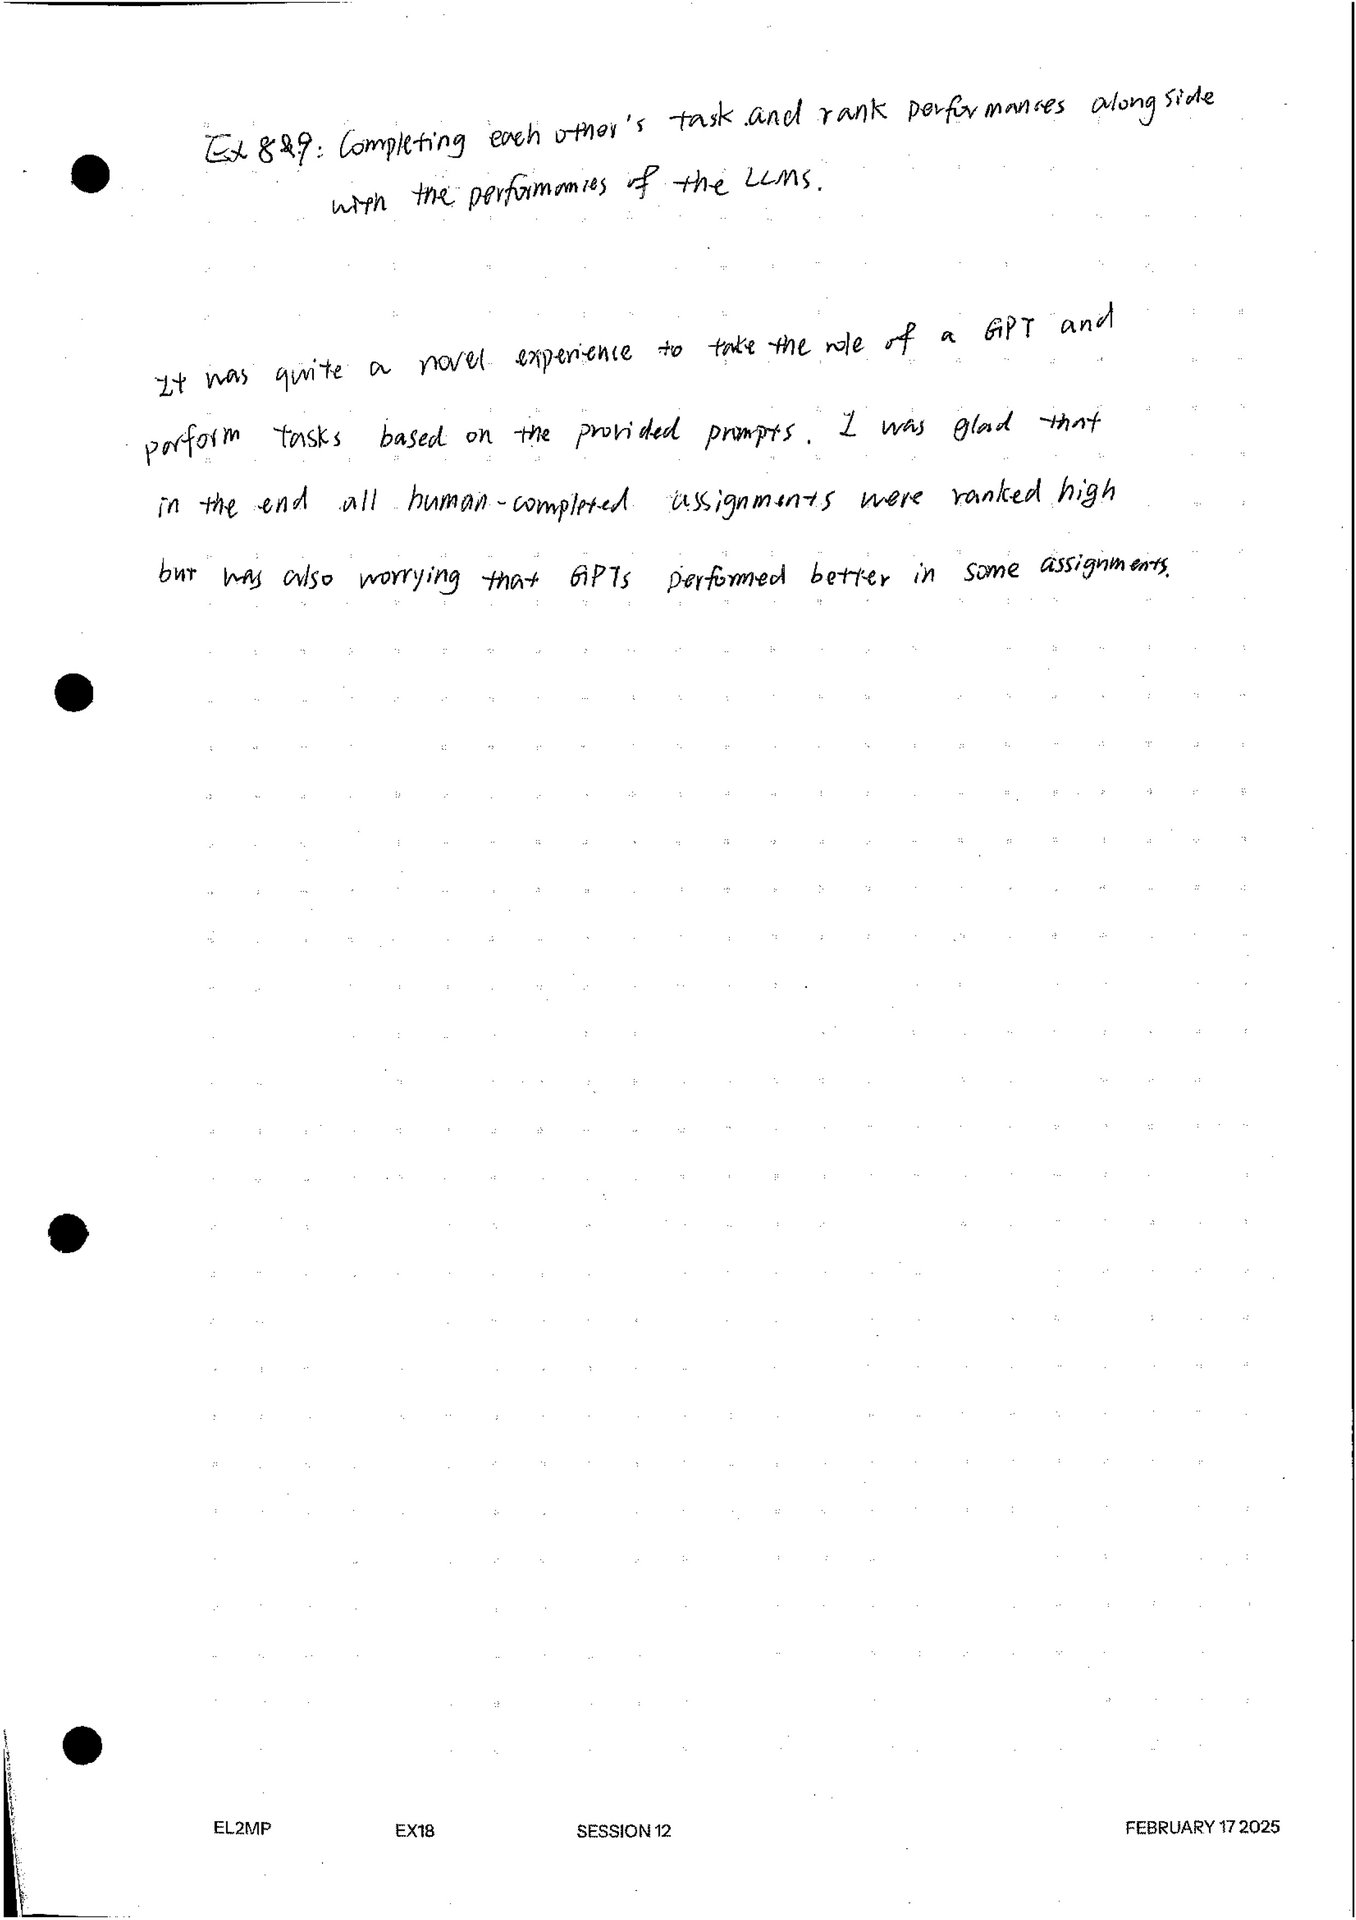 Ex 8&9: Completing each other's task and rank performances alongside
with the performances of the LLMs.
It was quite a novel experience to take the role of a GPT and
perform tasks based on the provided prompts. I was glad that
in the end all human-completed assignments were ranked high
but was also worrying that GPTs performed better in some assignments.
EL2MP EX18 SESSION 12 FEBRUARY 17 2025